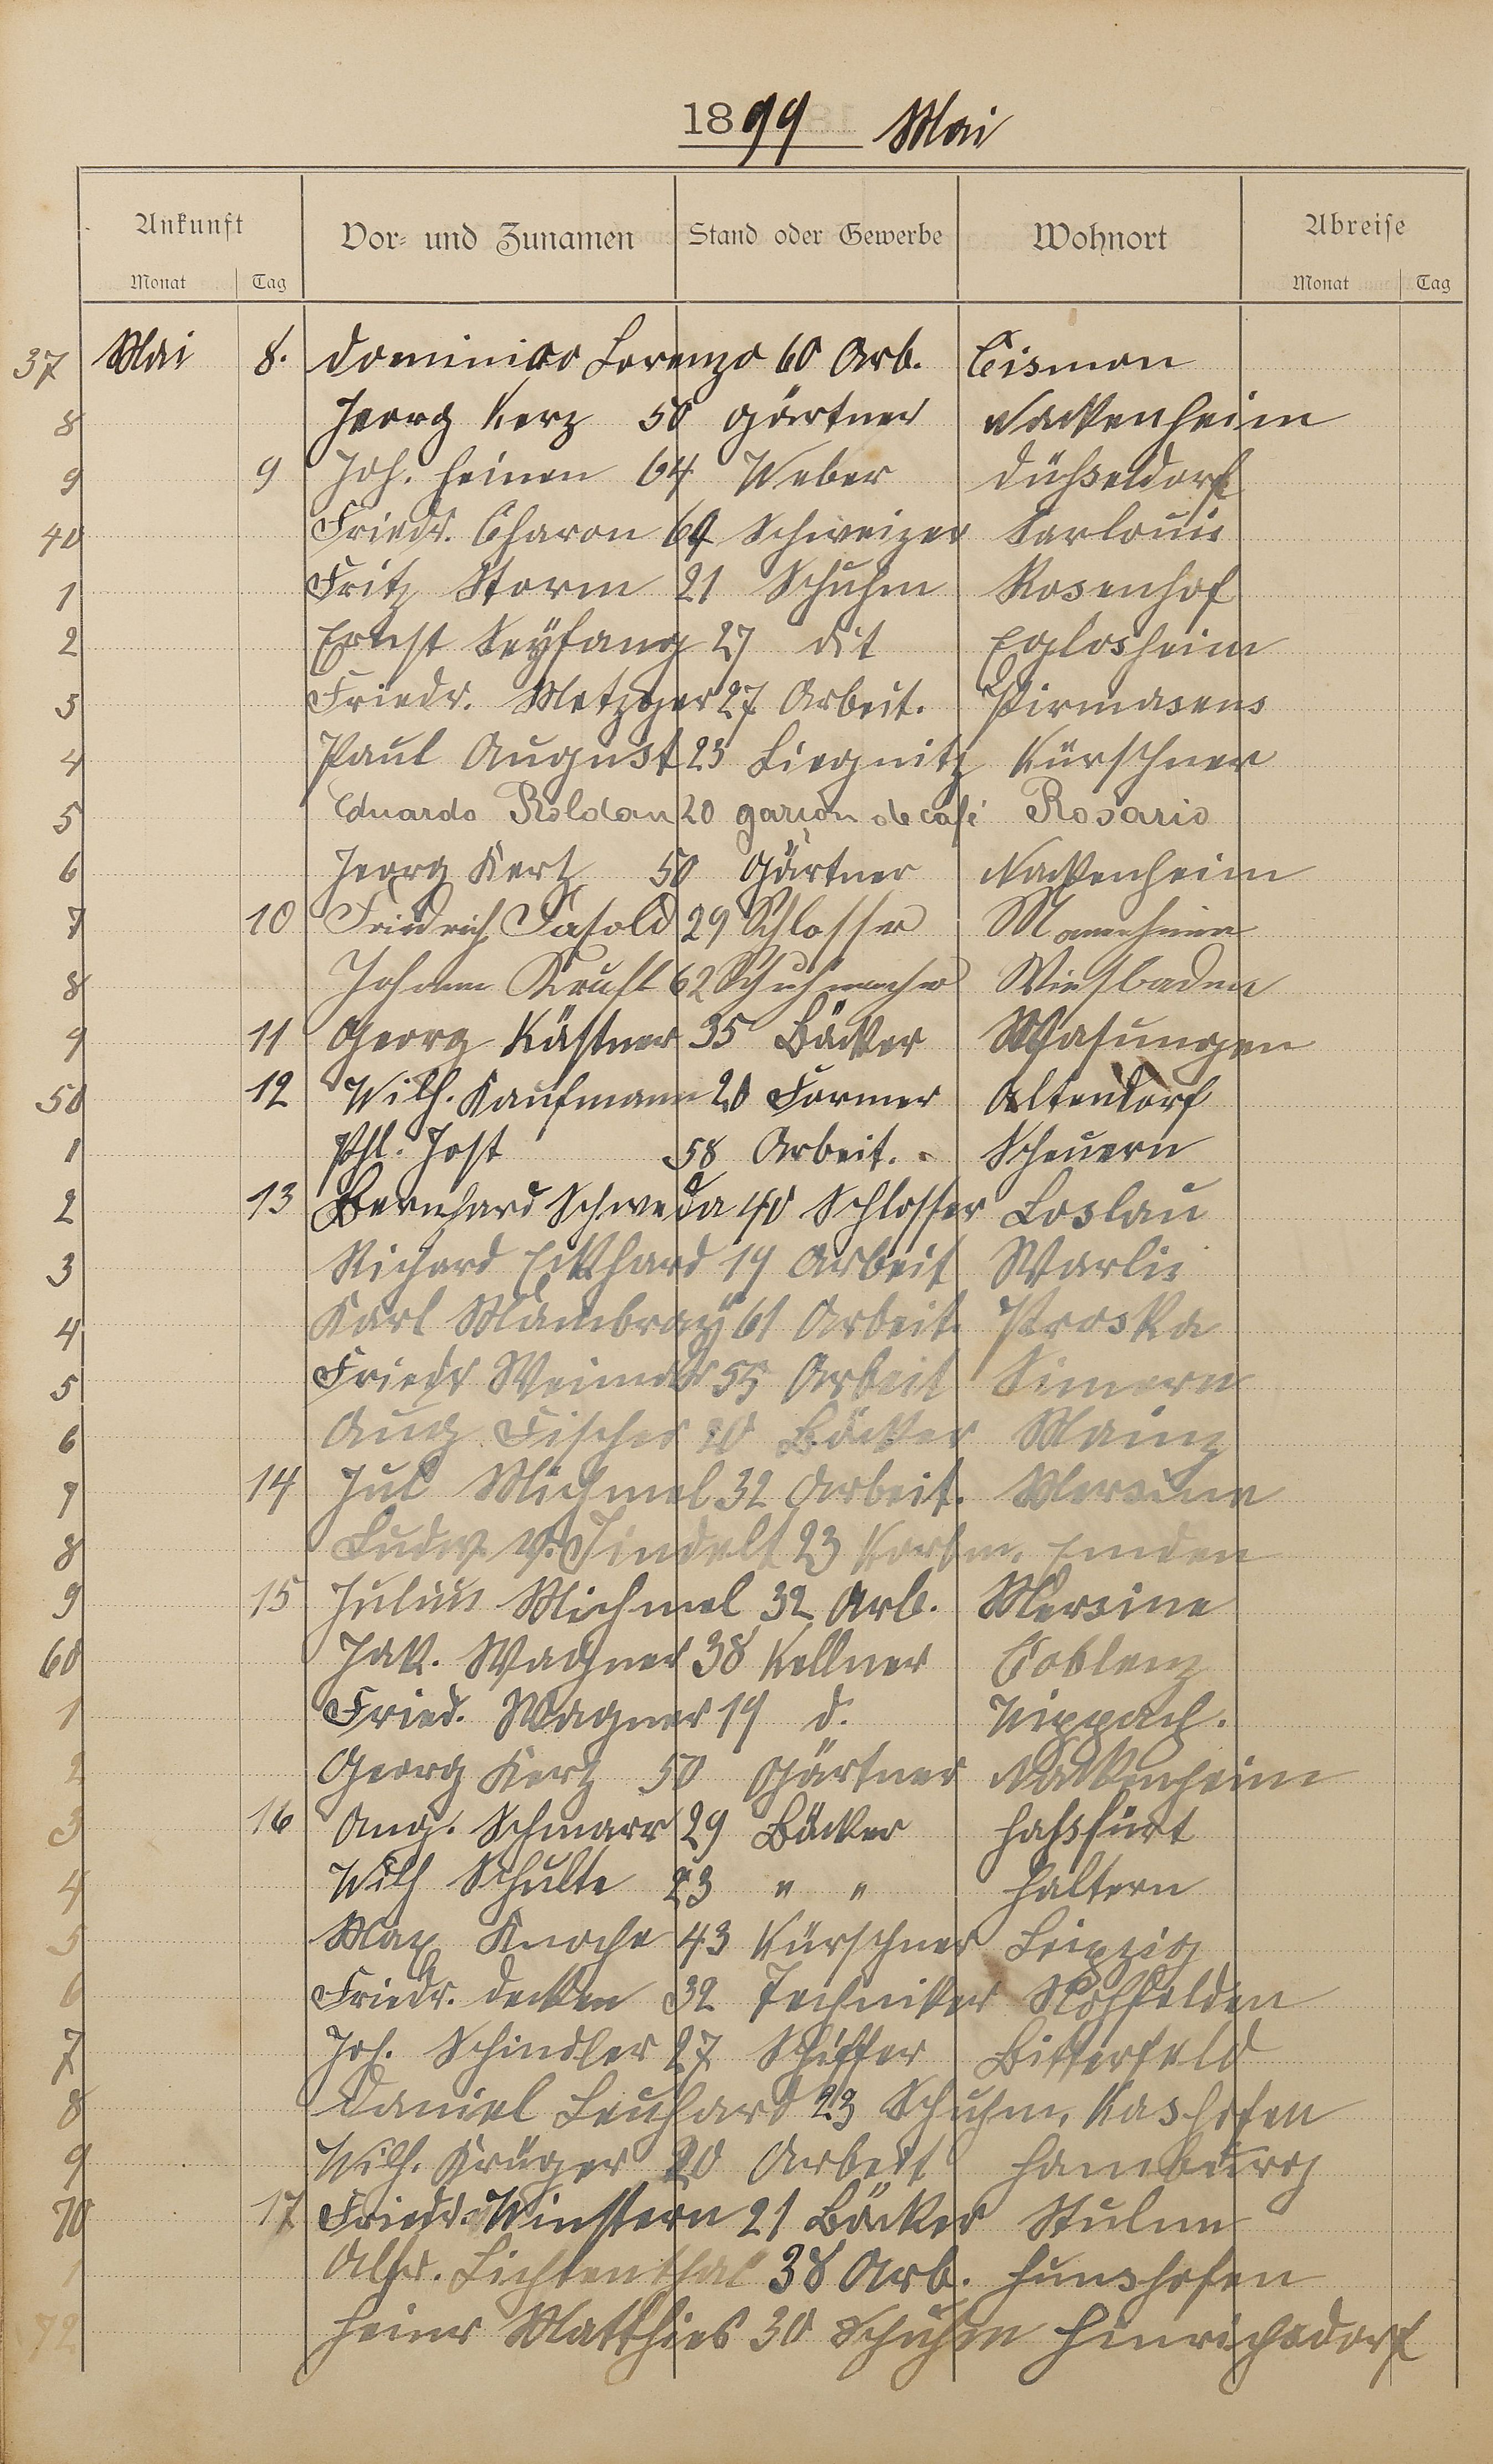 1899 Mai
Ankunft Vor- und Zunamen Stand oder Gewerbe Wohnort Abreise
Monat Tag Monat Tag
37 Mai 8. Dominico Lorenzo 60 Arb. Cismon
8 Georg Kerz 50 Gärtner Nackenheim
9 9 Joh. Heinen 64 Weber Düsseldorf
40 Friedr. Charon 69 Schweizer Sarlouis
1 Fritz Storm 21 Schuhm Rosenhof
2 Ernst Seyfang 27 dit Eglosheim
3 Friedr. Metzger 27 Arbeit. Pirmasens
4 Paul August 23 Liegnitz Kürschner
5 Eduardo Roldan 20 garçon de café Rosario
6 Georg Kertz 50 Gärtner Nackenheim
7 10 Friedrich Fasold 29 Schlosser Mannheim
8 Johann Kruft 62 Schuhmacher Wiesbaden
9 11 Georg Kästner 35 Bäcker Wasungen
50 12 Wilh. Kaufmann 20 Former Altendorf
1 Phl. Jost 58 Arbeit. Scheuern
2 13 Bernhard Schweda 40 Schlosser Loslau
3 Richard Eckhard 19 Arbeit
4 Karl Mambray 61 Arbeit. Proska
5 Friedr 55 Arbeit Simern
6 Aug Fischer Bäcker Mainz
7 14 Jul Michmel 32 Arbeit. Mersine
8 Ludw. v. 23 Korbm. Emden
9 15 Julius Michmel 32 Arb. Mersine
60 Jak. Wagner 38 Kellner Coblenz
1 Fried. Wagner 19 d. Vippach.
2 Georg Kertz 50 Gärtner Nackenheim
3 16 Aug. Schmarr 29 Bäcker Hassfurt
4 Wilh Schulte 23 " " Haltern
5 Max Knoche 43 Kürschner Leipzig
6 Friedr. Decker 32 Techniker Nohfelden
7 Joh. Schindler 27 Schiffer Bitterfeld
8 Daniel Leuhard 23 Schuhm. Kashofen
9 Wilh. Krüger 20 Arbeit Hamburg
70 17 Friedr. 21 Bäcker
1 Alfr. Lichtenthal 38 Arb. Hunshofen
72 Heinr Matthies 30 Schuhm Hinrichsdorf